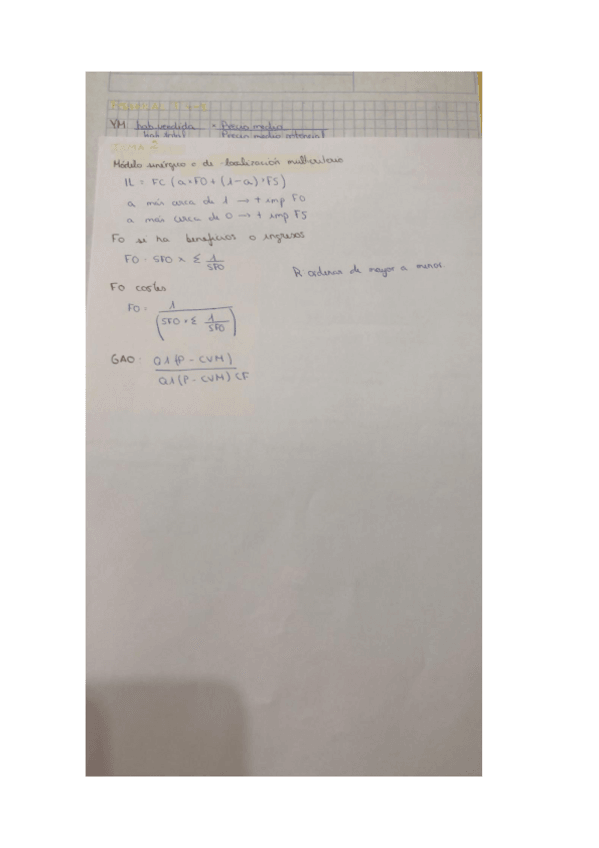 YM hab vendida × Precio medio
hab total Precio medio potencial
TEMA 2
Módelo sinérgico e de localización multicriterio
IL = FC (a × FO + (1-a) × FS)
a más cerca de 1 → + imp FO
a más cerca de 0 → + imp FS
FO si ha beneficios o ingresos
FO = SFO × Σ 1/SFO
R: ordenas de mayor a menor.
FO costes
FO = 1/(SFO × Σ 1/SFO)
GAO = Q1 (P - CVM)/Q1 (P - CVM) CF